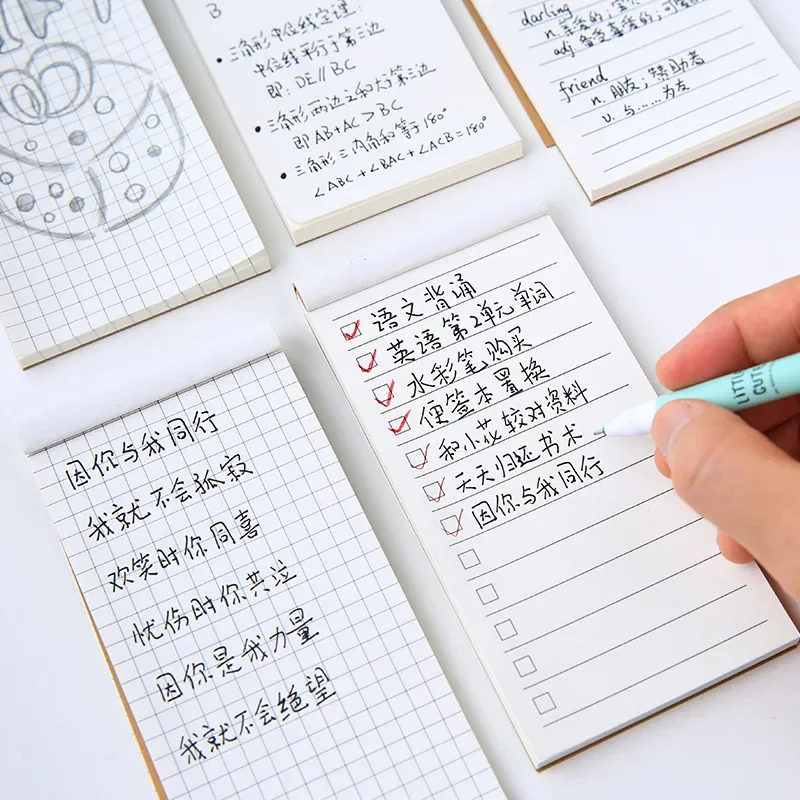 B
• 三角形中位线定理:
中位线平行于第三边
即: DE∥BC
• 三角形两边之和大于第三边
即 AB+AC>BC
• 三角形三内角和等于180°
∠ABC+∠BAC+∠ACB=180°
darling
n. 亲爱的;
adj. 备受喜爱的;
friend
n. 朋友; 赞助者
v. 与……为友
语文背诵
英语第2单元单词
水彩笔购买
便签本置换
和小花较对资料
天天归还书术
因你与我同行
因你与我同行
我就不会孤寂
欢笑时你同喜
忧伤时你共泣
因你是我力量
我就不会绝望
LITTLE